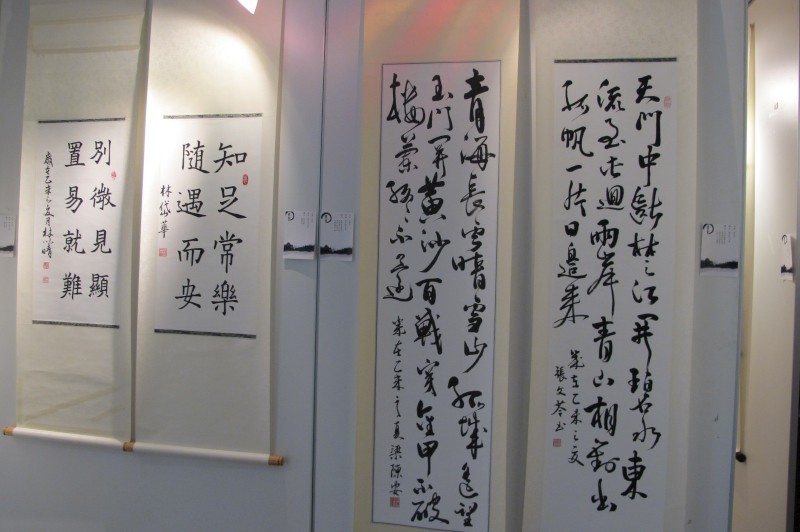 天門中斷楚江開碧水東
流至此迴兩岸青山相對出
孤帆一片日邊來
歲在乙未之夏
張文岑書
青海長雲暗雪山孤城遙望
玉門關黃沙百戰穿金甲不破
樓蘭終不還
歲在乙未之夏梁陳安
知足常樂
随遇而安
林岱華
別微見顯
置易就難
歲在乙未之夏月林